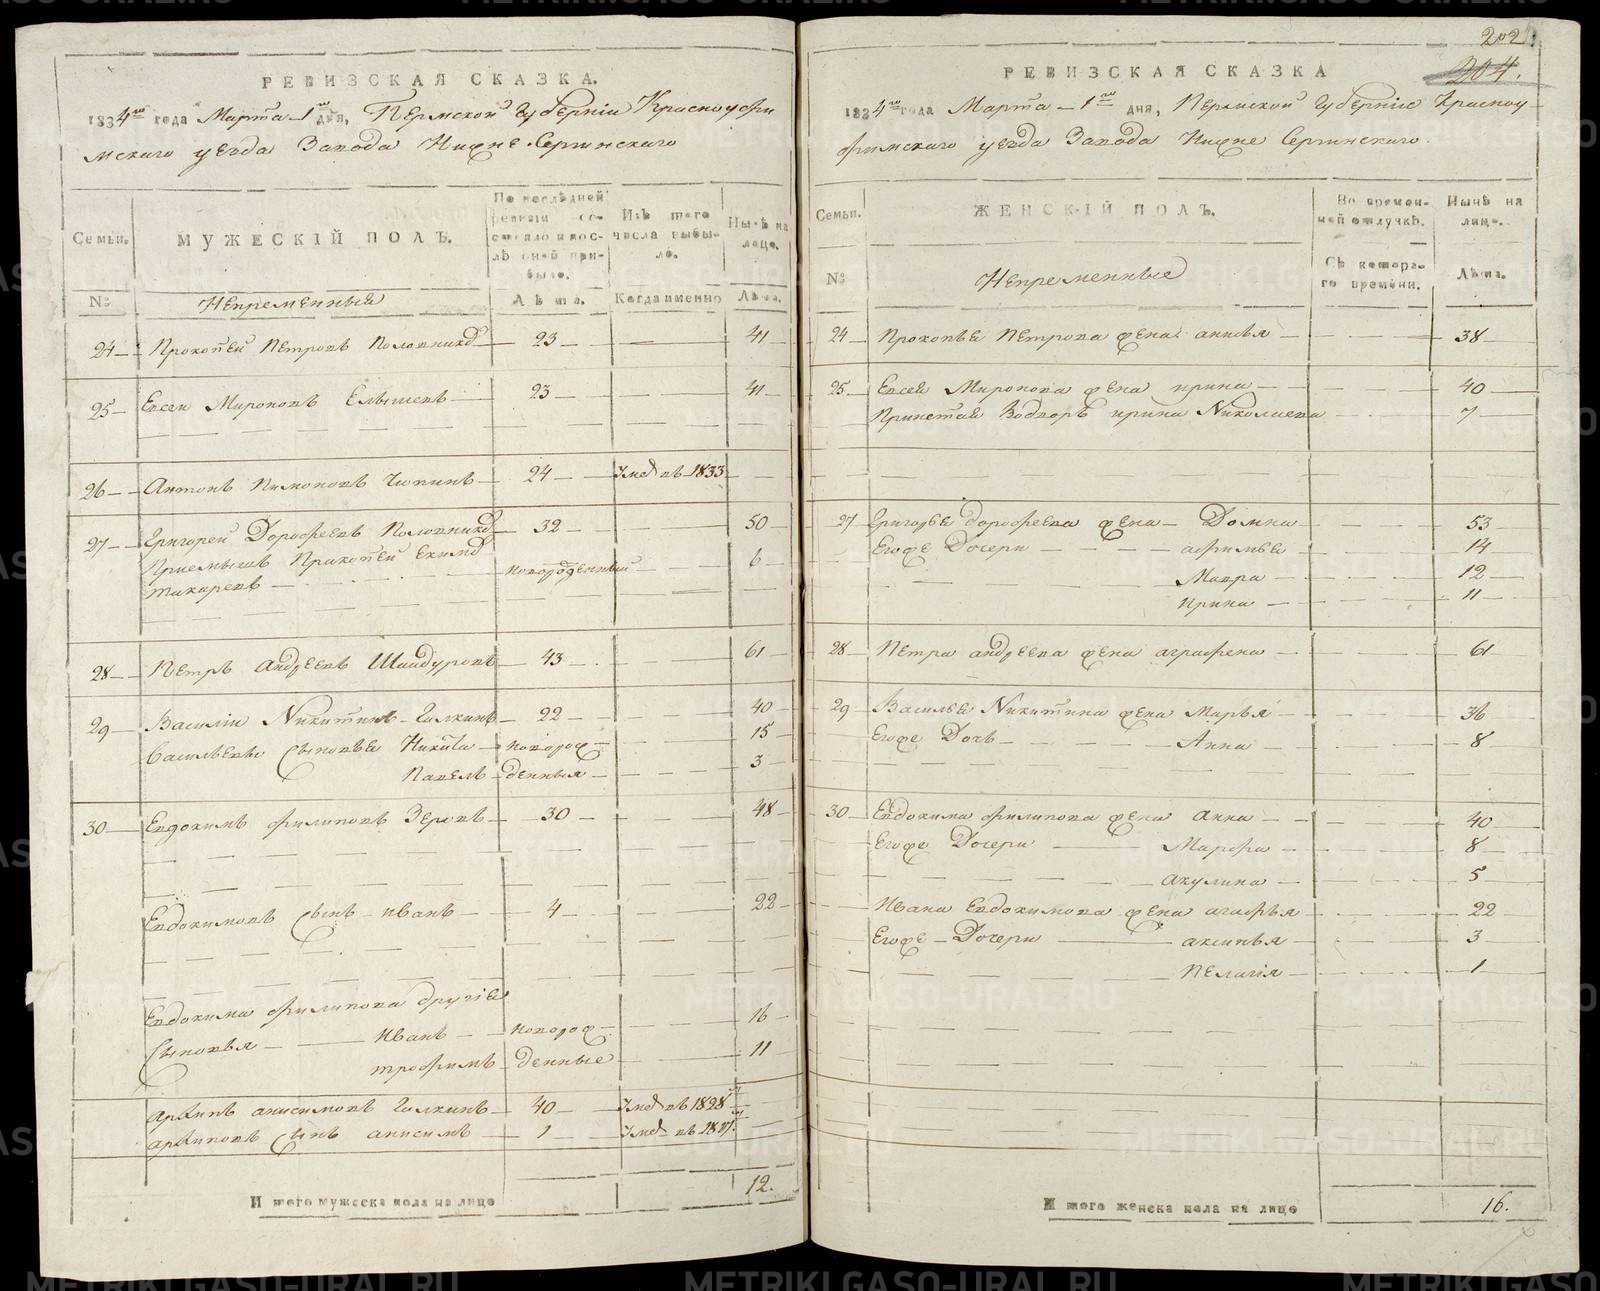 РЕВИЗСКАЯ СКАЗКА.
1834го года Марта 1го дня, Пермской Губерніи Красноуфи
мскаго уезда Завода Нижне Сергинскаго
Семьи.
МУЖЕСКІЙ ПОЛЪ.
По последней ревизіи состояло и после оной прибыло.
Изъ того числа выбыло.
Ныне на лицо.
№
Непременныя
Лета.
Когда именно
Лета.
24 Прокопей Петровъ Половник 23 41
25 Евсеи Мироновъ Елышевъ 23 41
26 Антонъ Пимоновъ Чюпинъ 24 Умер въ 1833
27 Григореи Дорофеевъ Половник 32 50
Приемышъ Пракопей Еким
токаревъ новорожденный 6
28 Петръ Андреевъ Шайдуровъ 43 61
29 Василии Никитинъ Галкинъ 22 40
Васильевы Сыновья Никита новорож 15
Павелъ денныя 3
30 Евдокимъ филиповъ Зеровъ 30 48
Евдокимовъ Сынъ иванъ 4 22
Евдокима филипова другіе
Сыновья Иванъ новорож 16
трофимъ денные 11
архипъ анисимовъ Галкинъ 40 Умер въ 1828
архиповъ Сынъ анисимъ 1 Умер въ
И того мужеска пола на лицо 12.
202
204.
РЕВИЗСКАЯ СКАЗКА
1834го года Марта 1го дня, Пермской Губерніи Красноу
фимскаго уезда Завода Нижне Сергинскаго.
Семьи.
ЖЕНСКІЙ ПОЛЪ.
Во временной отлучке.
Ныне на лицо.
№
Непременные
Съ котораго времени.
Лета.
24 Прокопья Петрова жена анисья 38
25 Евсея Миронова жена ирина 40
Принетая Водворъ ирина Николаева 7
27 Григорья дорофеева жена Домна 53
Егоже Дочери афимья 14
Мавра 12
ирина 11
28 Петра андреева жена аграфена 61
29 Василья Никитина жена Марья 36
Егоже Дочь Анна 8
30 Евдокима филипова жена Анна 40
Егоже Дочери Марфа 8
акулина 5
Ивана Евдокимова жена агафья 22
Егоже Дочери аксинья 3
Пелагія 1
И того женска пола на лицо 16.
METRIKI.GASO-URAL.RU